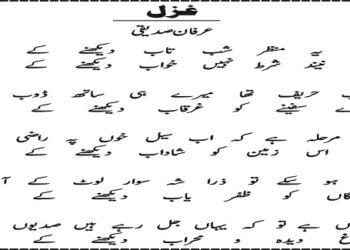 غزل
عرفان صدیقی
یہ منظر شب تاب دیکھنے کے
نیند شرط نہیں خواب دیکھنے کے
حریف تھا میرے ہی ساتھ ڈوب
سفینے کو غرقاب دیکھنے کے
مرحلہ ہے کہ اب سیل خوں پہ راضی
اس زمین کو شاداب دیکھنے کے
ہو سکے تو ذرا شہ سوار لوٹ کے آ
کو ظفر یاب دیکھنے کے
ہے تو کہ یہاں جل رہے ہیں صدیوں
دیدہ و محراب دیکھنے کے